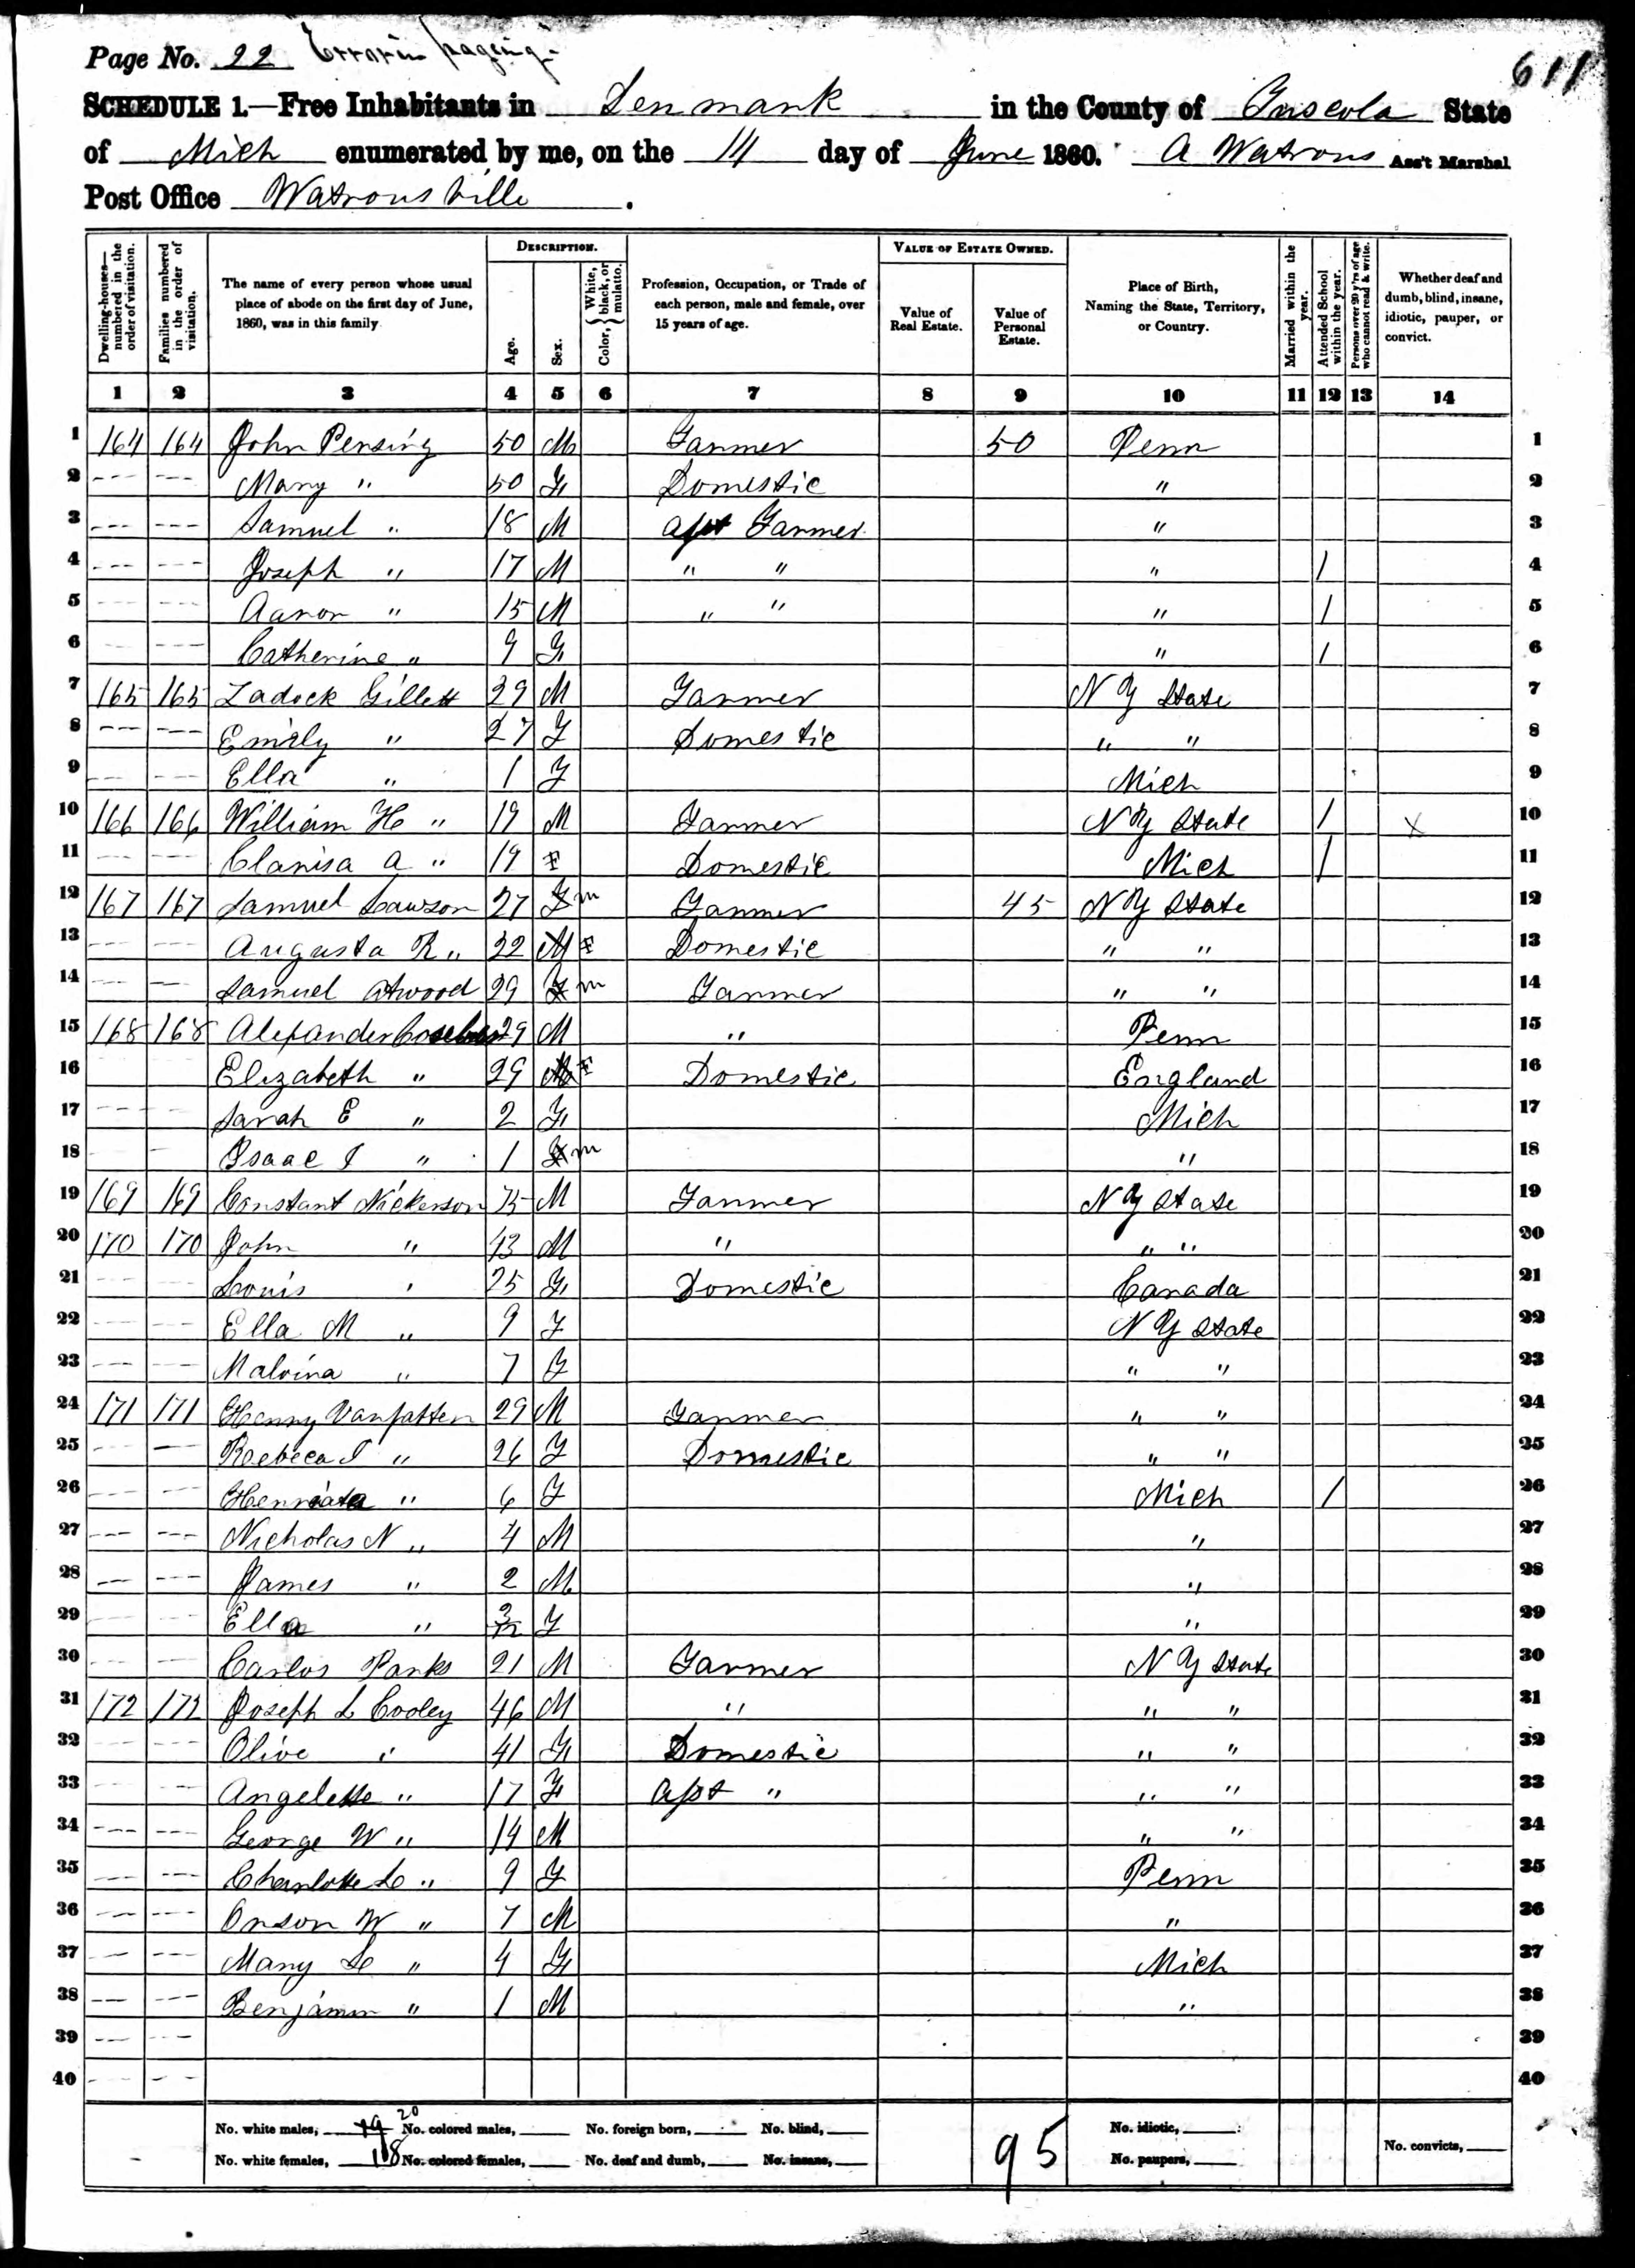 Page No. 22 Error in pageing 611
SCHEDULE 1.—Free Inhabitants in Denmark in the County of Tuscola State
of Mich enumerated by me, on the 14 day of June 1860. A Watrous Ass't Marshal
Post Office Watrousville .
DESCRIPTION. VALUE OF ESTATE OWNED.
Dwelling-houses—numbered in the order of visitation. Families numbered in the order of visitation. The name of every person whose usual place of abode on the first day of June, 1860, was in this family Age. Sex. Color, { White, black, or mulatto. Profession, Occupation, or Trade of each person, male and female, over 15 years of age. Value of Real Estate. Value of Personal Estate. Place of Birth, Naming the State, Territory, or Country. Married within the year. Attended School within the year. Persons over 20 y'rs of age who cannot read & write. Whether deaf and dumb, blind, insane, idiotic, pauper, or convict.
1 2 3 4 5 6 7 8 9 10 11 12 13 14
1 164 164 John Pensing 50 M Farmer 50 Penn 1
2 Mary " 50 F Domestic " 2
3 Samuel " 18 M apt Farmer " 3
4 Joseph " 17 M " " " / 4
5 Aaron " 15 M " " " / 5
6 Catherine " 9 F " / 6
7 165 165 Zadock Gillett 29 M Farmer N Y State 7
8 Emily " 27 F Domestic " " 8
9 Ella " 1 F Mich 9
10 166 166 William H " 19 M Farmer N Y State / X 10
11 Clarisa A " 19 F Domestic Mich / 11
12 167 167 Samuel Lawson 27 F m Farmer 45 N Y State 12
13 Augusta R " 22 M F Domestic " " 13
14 Samuel Atwood 29 F m Farmer " " 14
15 168 168 Alexander 29 M " Penn 15
16 Elizabeth " 29 M F Domestic England 16
17 Sarah E " 2 F Mich 17
18 Isaac I " 1 F m " 18
19 169 169 Constant Nickerson 75 M Farmer N Y State 19
20 170 170 John " 43 M " " " 20
21 Lovis " 25 F Domestic Canada 21
22 Ella M " 9 F N Y State 22
23 Malvina " 7 F " " 23
24 171 171 Henry Vanpatten 29 M Farmer " " 24
25 Rebeca J " 26 F Domestic " " 25
26 Henriata " 6 F Mich / 26
27 Nicholas N " 4 M " 27
28 James " 2 M " 28
29 Ella " 3/12 F " 29
30 Carlos Parks 21 M Farmer N Y State 30
31 172 172 Joseph L Cooley 46 M " " " 31
32 Olive " 41 F Domestic " " 32
33 Angelette " 17 F Apt " " " 33
34 George W " 14 M " " 34
35 Charlotte L " 9 F Penn 35
36 Orson W " 7 M " 36
37 Mary L " 4 F Mich 37
38 Benjamin " 1 M " 38
39 39
40 40
No. white males, 19 20 No. colored males, No. foreign born, No. blind, No. idiotic,
No. white females, 18 No. colored females, No. deaf and dumb, No. insane, 95 No. paupers, No. convicts,